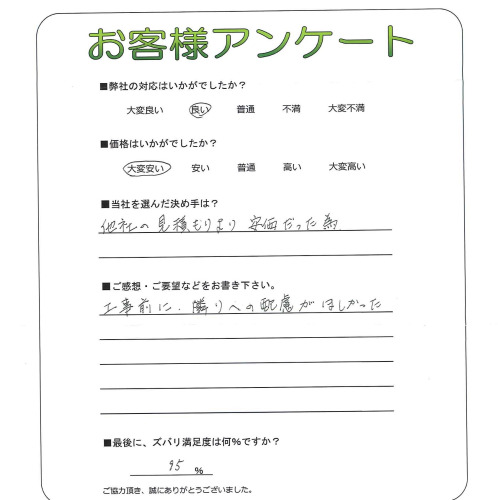 お客様アンケート
■弊社の対応はいかがでしたか？
大変良い 良い 普通 不満 大変不満
■価格はいかがでしたか？
大変安い 安い 普通 高い 大変高い
■当社を選んだ決め手は？
他社の見積もりより 安価だった為
■ご感想・ご要望などをお書き下さい。
工事前に、隣りへの配慮がほしかった
■最後に、ズバリ満足度は何%ですか？
95 %
ご協力頂き、誠にありがとうございました。